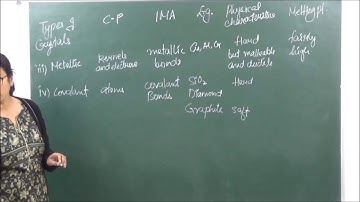 Types of C-P IMA Eg. Physical Melting pt.
Crystals characteristics
iii) Metallic Kernels and electrons metallic bonds Cu, Ag, Hard but malleable and ductile fairly high
iv) Covalent atoms covalent Bonds SiO2 Hard
Diamond
Graphite soft